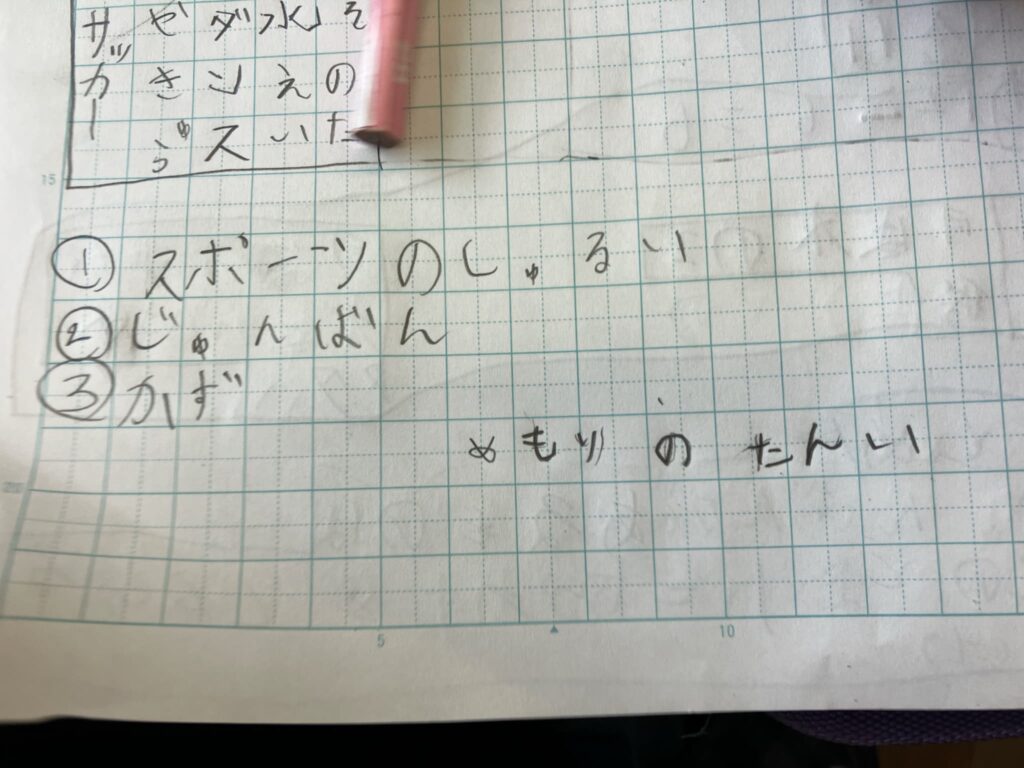 サッカー
やきゅう
ダンス
水えい
そのた
15
① スポーツのしゅるい
② じゅんばん
③ かず
めもりのたんい
20
5
10